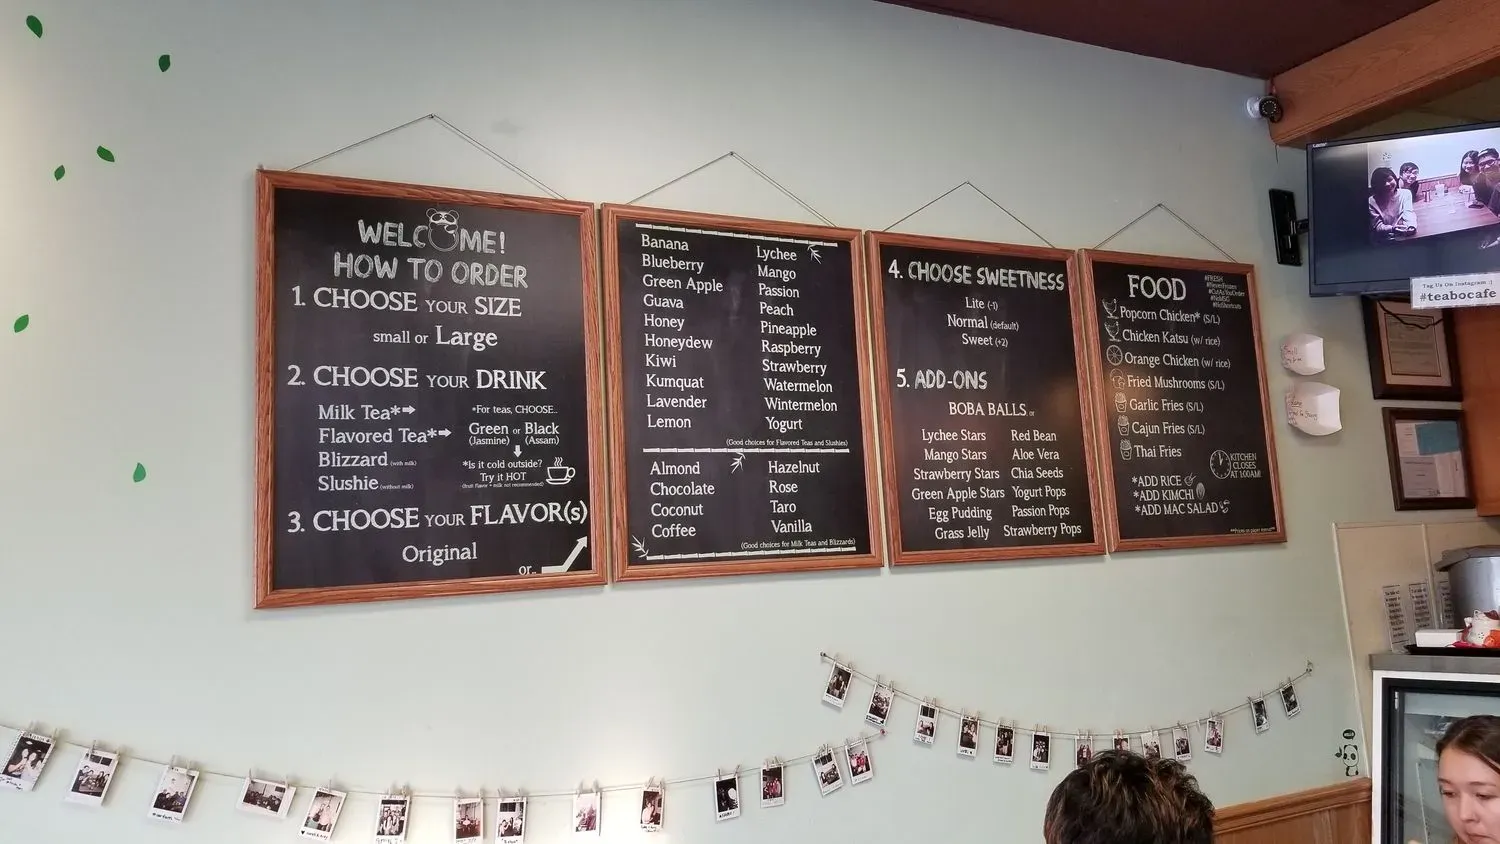 WELCOME!
HOW TO ORDER
1. CHOOSE YOUR SIZE
small or Large
2. CHOOSE YOUR DRINK
Milk Tea*
Flavored Tea*
Blizzard (with milk)
Slushie (without milk)
*For teas, CHOOSE..
Green or Black
(Jasmine) (Assam)
*Is it cold outside?
Try it HOT
(fruit flavor + milk not recommended)
3. CHOOSE YOUR FLAVOR(s)
Original
or..
Banana
Blueberry
Green Apple
Guava
Honey
Honeydew
Kiwi
Kumquat
Lavender
Lemon
Lychee
Mango
Passion
Peach
Pineapple
Raspberry
Strawberry
Watermelon
Wintermelon
Yogurt
(Good choices for Flavored Teas and Slushies)
Almond
Chocolate
Coconut
Coffee
Hazelnut
Rose
Taro
Vanilla
(Good choices for Milk Teas and Blizzards)
4. CHOOSE SWEETNESS
Lite (-1)
Normal (default)
Sweet (+2)
5. ADD-ONS
BOBA BALLS or
Lychee Stars
Mango Stars
Strawberry Stars
Green Apple Stars
Egg Pudding
Grass Jelly
Red Bean
Aloe Vera
Chia Seeds
Yogurt Pops
Passion Pops
Strawberry Pops
FOOD
#FRESH
#NeverFrozen
#CutAsYouOrder
#NoMSG
#NoShortcuts
Popcorn Chicken* (S/L)
Chicken Katsu (w/ rice)
Orange Chicken (w/ rice)
Fried Mushrooms (S/L)
Garlic Fries (S/L)
Cajun Fries (S/L)
Thai Fries
KITCHEN
CLOSES
AT 1:00AM!
*ADD RICE
*ADD KIMCHI
*ADD MAC SALAD
Tag Us On Instagram :)
#teabocafe
Small